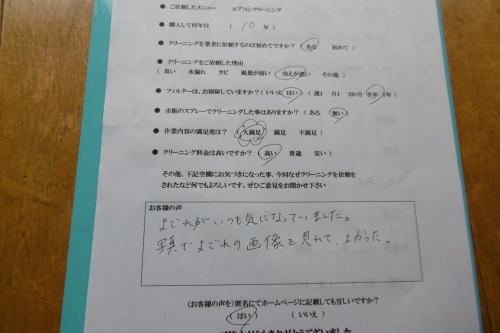 ● ご依頼したメニュー　エアコンクリーニング
● 購入して何年目　（ 10 年 ）
● クリーニングを業者に依頼するのは初めてですか？（ ある　初めて ）
● クリーニングをご依頼した理由
（ 臭い　水漏れ　カビ　風量が弱い　冷えが悪い　その他 ）
● フィルターは、お掃除していますか？（ いいえ　はい ）（ 週1　月1　3か月　半年　1年 ）
● 市販のスプレーでクリーニングした事はありますか？（ ある　無い ）
● 作業内容の満足度は？（ 大満足　満足　不満足 ）
● クリーニング料金は高いですか？（ 高い　普通　安い ）
その他、下記空欄にお気づきになった事、今回なぜクリーニングを依頼を
されたなど何でもよろしいです。ぜひご意見をお聞かせ下さい
お客様の声
よごれがいつも気になっていました。
写真でよごれの画像を見れて、よかった。
（お客様の声を）匿名にてホームページに記載しても宜しいですか？
（ はい　　いいえ ）